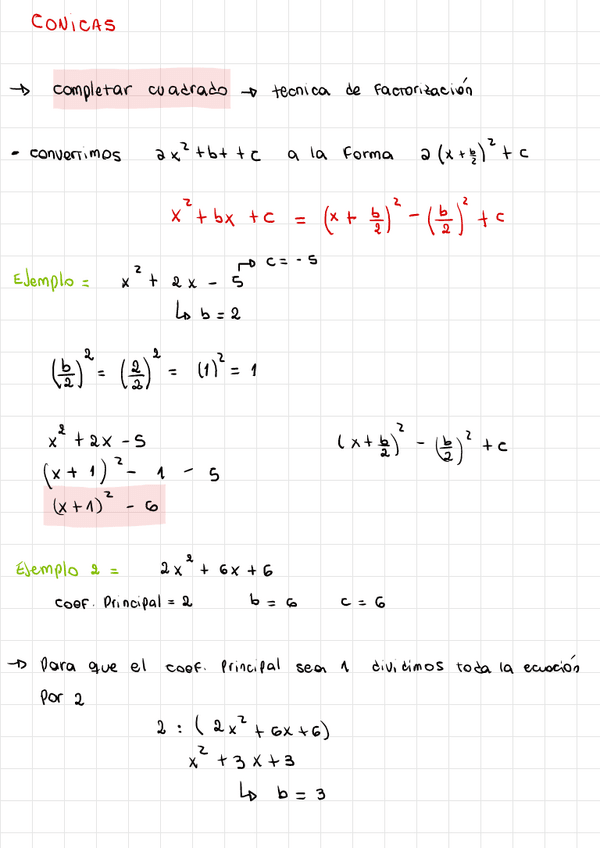 CONICAS
→ completar cuadrado → tecnica de Factorización
• convertimos ax² + bt + c a la Forma a(x + b/2)² + c
x² + bx + c = (x + b/2)² - (b/2)² + c
Ejemplo = x² + 2x - 5 → c = - 5
↳ b = 2
(b/2)² = (2/2)² = (1)² = 1
x² + 2x - 5 (x + b/2)² - (b/2)² + c
(x + 1)² - 1 - 5
(x+1)² - 6
Ejemplo 2 = 2x² + 6x + 6
coef. Principal = 2 b = 6 c = 6
→ Para que el coef. Principal sea 1 dividimos toda la ecuación
por 2
2 : (2x² + 6x + 6)
x² + 3x + 3
↳ b = 3